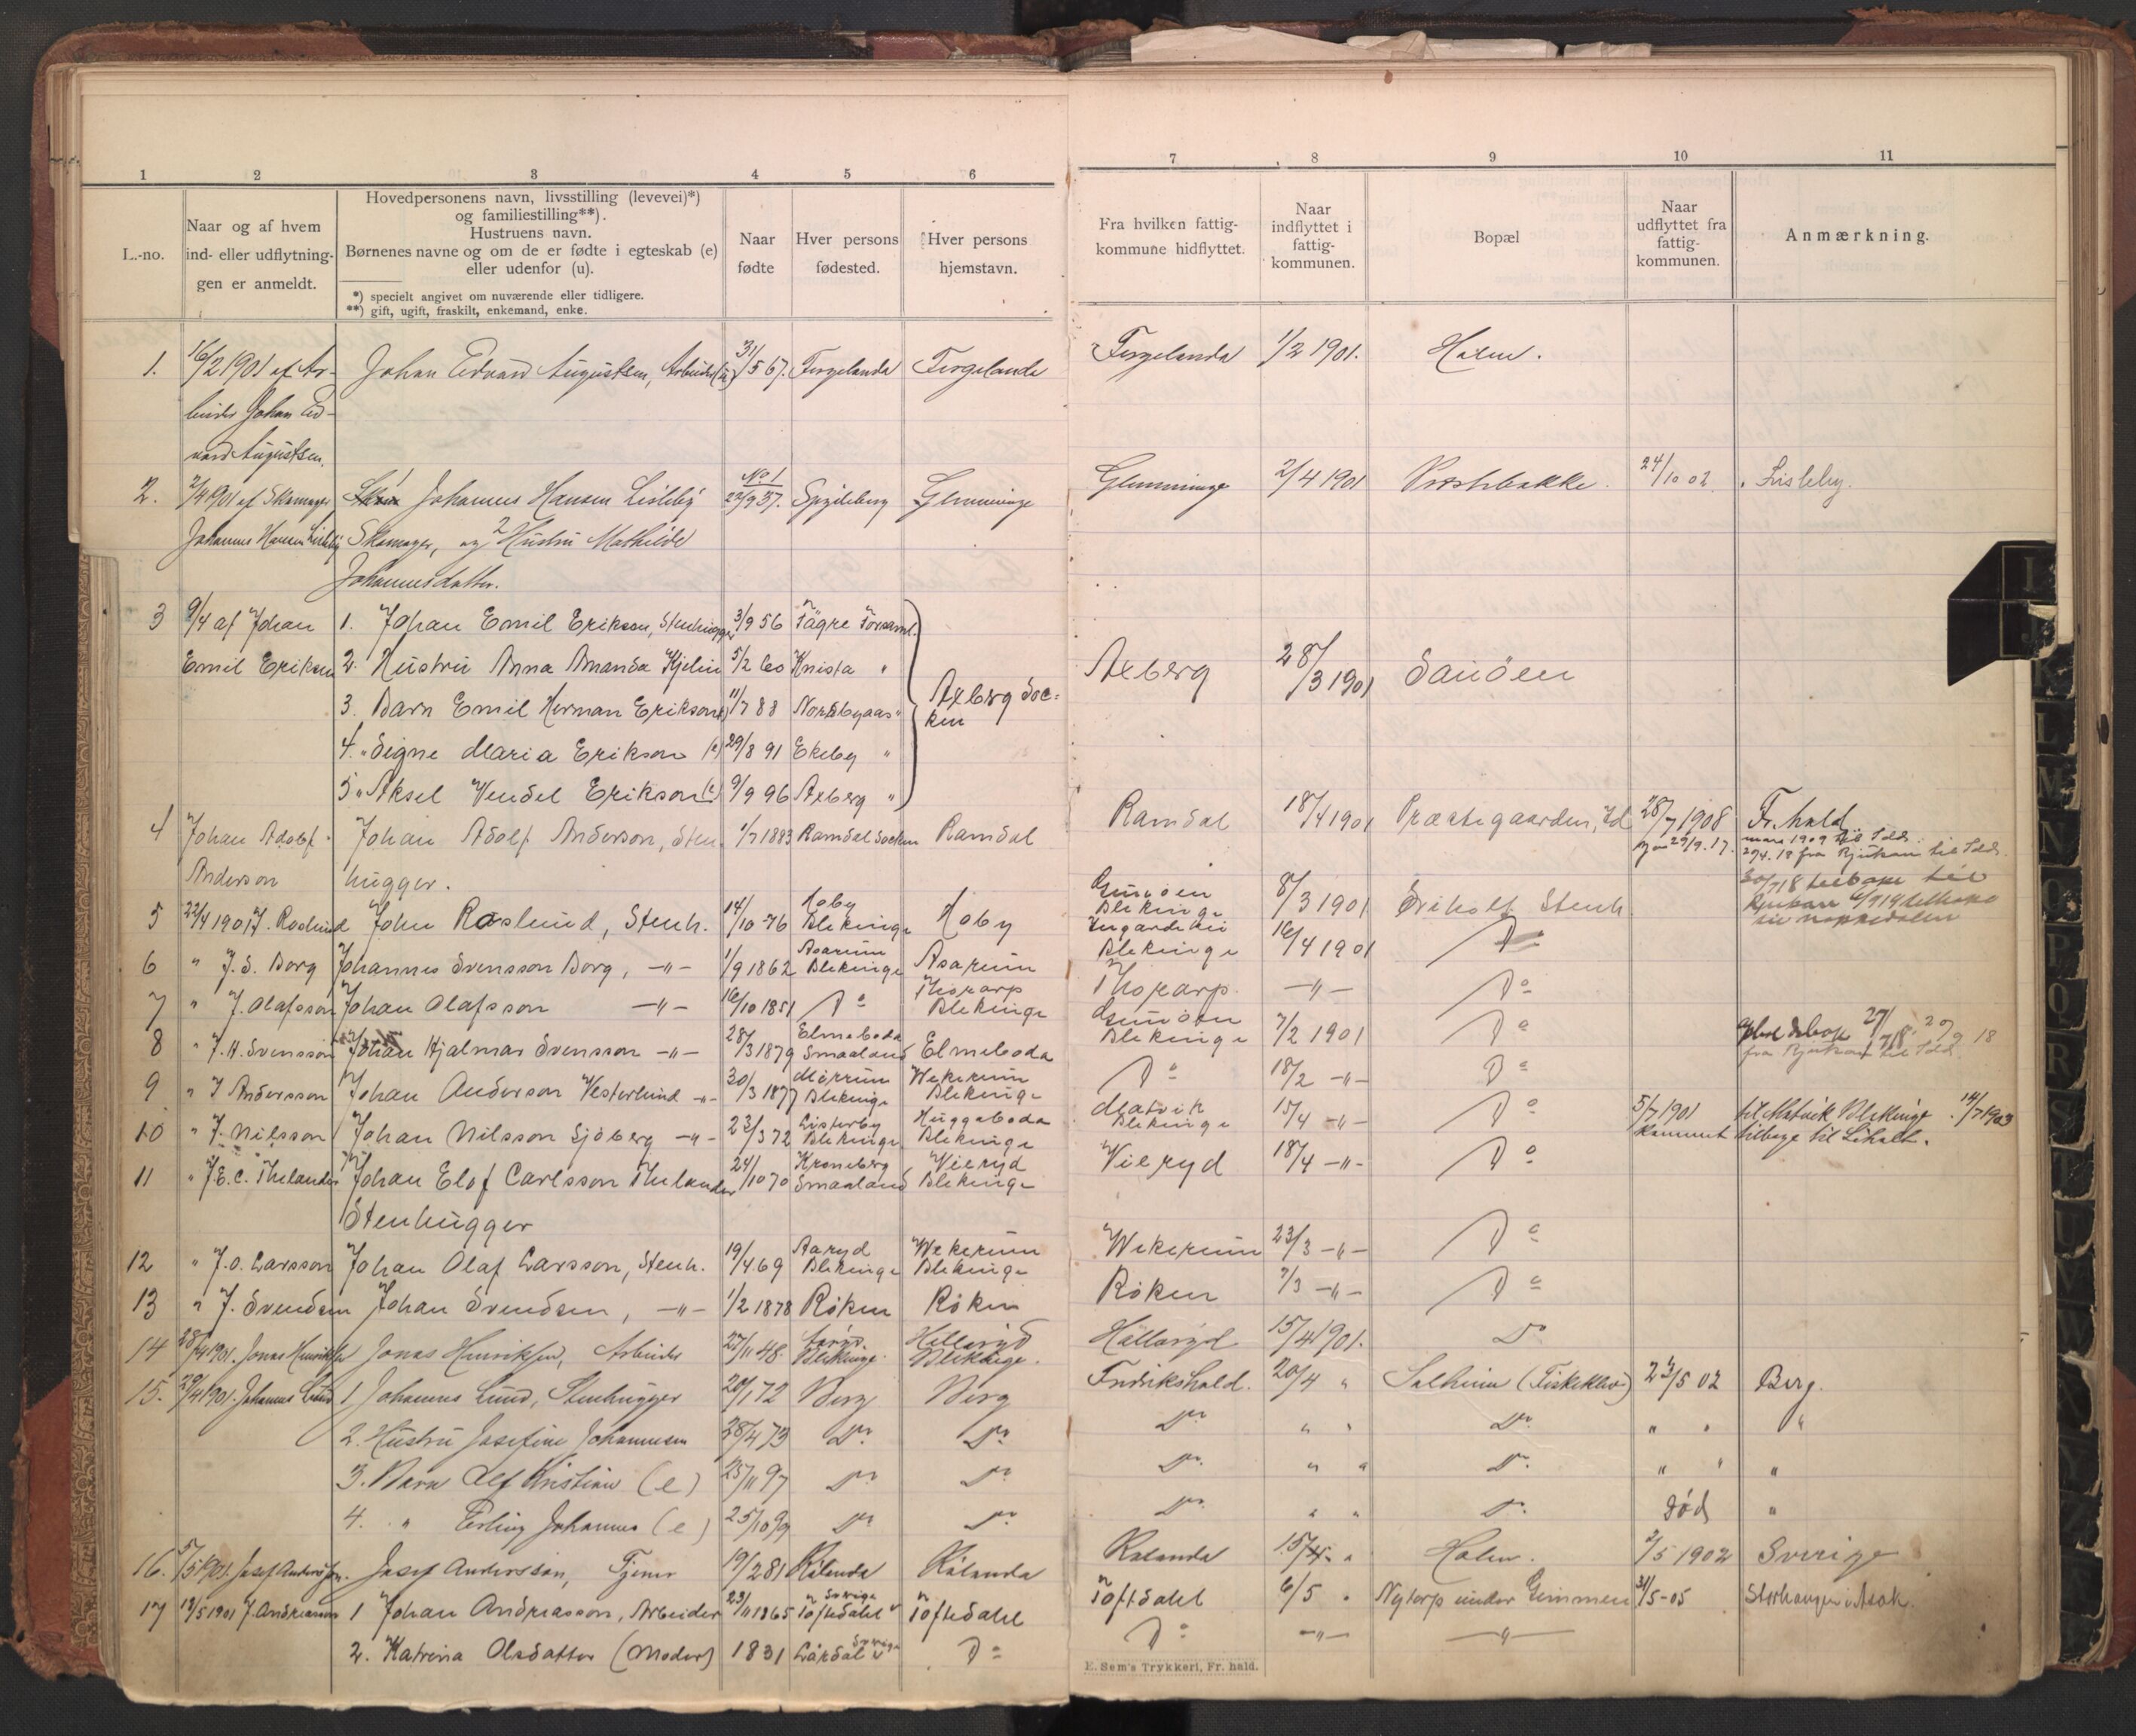 1 2 3 4 5 6 7 8 9 10 11
L.-no.
Naar og af hvem
ind- eller udflytnin-
gen er anmeldt.
Hovedpersonens navn, livsstilling (levevei)*)
og familiestilling**).
Hustruens navn.
Børnenes navne og om de er fødte i egteskab (e)
eller udenfor (u).
*) specielt angivet om nuværende eller tidligere.
**) gift, ugift, fraskilt, enkemand, enke.
Naar
fødte
Hver persons
fødested.
Hver persons
hjemstavn.
Fra hvilken fattig-
kommune hidflyttet.
Naar
indflyttet i
fattig-
kommunen.
Bopæl
Naar
udflyttet fra
fattig-
kommunen.
Anmærkning.
1. 16/2 1901 af Ar- Johan Edvard Augustsen, Arbeider (u) 31/5 67. Fergelanda Fergelanda Fergelanda 1/2 1901. Holm.
beider Johan Ed-
vard Augustsen.
2. 2/4 1901 af Skomager Johannes Hansen Lisleby No 1 22/9 37. Spydeberg Glemminge Glemminge 2/4 1901 Præstebakke. 24/10 02 Lisleby.
Johannes Hansen Lisleby Skomager, og 2 Hustru Mathilde
Johannesdatter.
3 9/4 af Johan 1. Johan Emil Erikson, Stenhugger 3/9 56 Tägre Församl.
Emil Erikson 2. Hustru Anna Amanda Kjelin 5/2 60 Knista " Axberg 28/3 1901 Sauöen
3. Barn Emil Herman Erikson 11/7 88 Nordbyaas " Axberg Soc=
ken
4. " Signe Maria Erikson (e) 29/8 91 Ekeby "
5 " Aksel Vendel Erikson (e) 9/9 96 Axberg "
4 Johan Adolf Johan Adolf Anderson, Sten- 1/7 1883 Ramdal Socken Ramdal Ramdal 18/4 1901 Præstegaarden, Id 28/7 1908 Fr.hald
Anderson hugger. 29/9. 17. mars 1909 til Idd.
27/4. 18 fra Rjukan til Idd.
30/7 18 tilbage til
Rjukan 6/9 19 tilbage
5 22/4 1901 J. Roslund John Roslund, Stenh. 14/10 76 Hoby Blekinge Hoby Gunöen Blekinge 8/3 1901 Liholt Stenh.
6 " J. S. Borg Johannes Svensson Borg, -"- 1/9 1862 Asarum Blekinge Asarum Blekinge 16/4 1901 Do
7 " J. Olafsson Johan Olafsson -"- 16/10 1851 Do Thorarp Blekinge Thorarp. -"- Do
8 " J. H. Svensson Johan Hjalmar Svensson -"- 28/3 1879 Elmeboda Smaaland Elmeboda Gunöen Blekinge 7/2 1901 Do 27/7 18. 20/9 18
fra Rjukan til Idd.
9 " J Andersson Johan Anderson Vesterlund -"- 30/3 1877 Mörrum Blekinge Wekerum Blekinge Do 18/2 -"- Do
10 " J. Nilsson Johan Nilsson Sjöberg -"- 23/3 72 Listerby Blekinge Huggeboda Blekinge Matvik Blekinge 15/4 -"- Do 5/7 1901 til Matvik Blekinge. 14/7 1903
Kommet tilbage til Liholt.
11 " J. E. C. Thelander Johan Elof Carlsson Thelander 24/10 70 Kroneberg Smaaland Vieryd Blekinge Vieryd 18/4 -"- Do
Stenhugger
12 " J. O. Larsson Johan Olaf Larsson, Stenh. 19/4 69 Aaryd Blekinge Wekerum Blekinge Wekerum 23/3 -"- Do
13 " J. Svendsen Johan Svendsen, -"- 1/2 1878 Röken Röken Röken 7/3 -"- Do
14 28/4 1901. Jonas Henriksen Jonas Henriksen, Arbeider 27/11 48. Blekinge. Hellaryd Blekinge. Hällaryd 15/4 1901. Do
15. 29/4 1901. Johannes Lund 1 Johannes Lund, Stenhugger 20/1 72 Berg Berg Fredrikshald. 20/4 " Solheim (Fiskekleiv) 23/5 02 Berg.
2. Hustru Josefine Johannesen 28/4 73 Do. Do. Do " " Do. " " "
3. Barn Alf Kristian (e) 25/11 97 Do Do Do. " " Do. " " "
4. " Erling Johannes (e) 25/10 99 Do Do Do " " Do. død "
16. 5/5 1901. Josef Anderssøn. Josef Anderssøn, Tjener 19/2 81 Rölanda Rölanda Rölanda 15/4. " Holm. 2/5 1902 Sverige
17 12/5 1901 J. Andreasson 1 Johan Andreasson, Arbeider 23/11 1865 Töftedalel Sverige Töftedalel Töftdalel 6/5 " Nytorp under Gimmen 31/5-05 Storhaugen i Asak.
2. Katrina Olsdatter (Moder) 1831 Lårdal Sverige Do Do -"- -"-
E. Sem's Trykkeri, Fr. hald.
I
J
L
M
N
O
P
Q
R
S
T
U